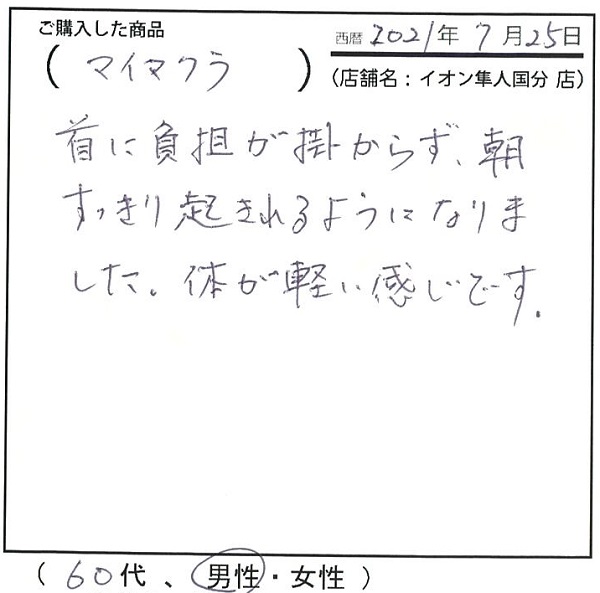 ご購入した商品
西暦 2021年 7月25日
( マイマクラ )
(店舗名：イオン隼人国分 店)
首に負担が掛からず、朝
すっきり起きれるようになりま
した。体が軽い感じです.
( 60代 、 男性・女性 )